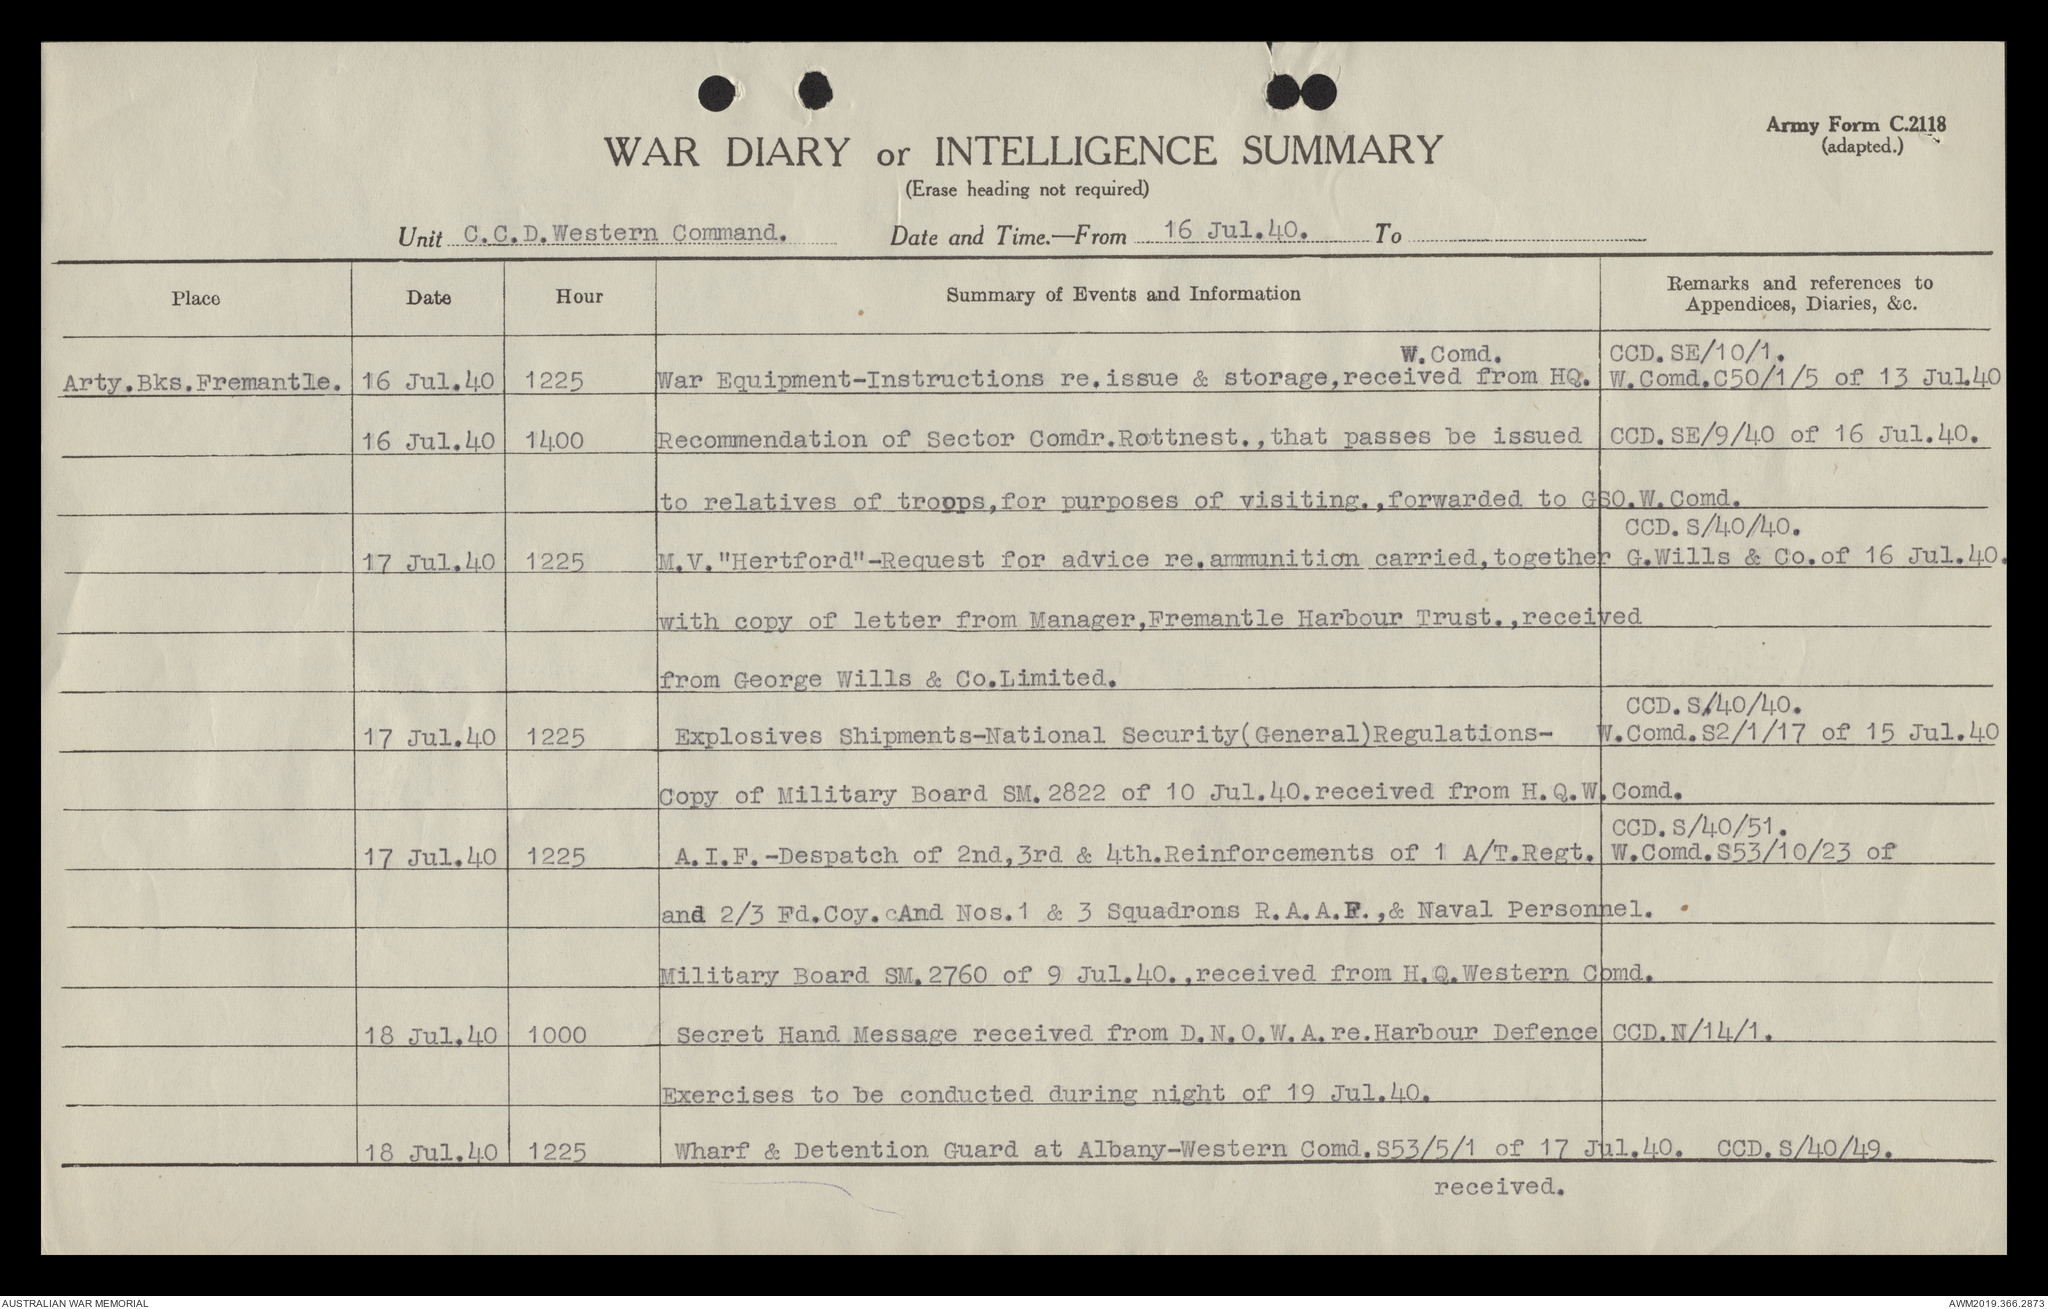 Army Form C.2118
(adapted.)
WAR DIARY or INTELLIGENCE SUMMARY
(Erase heading not required)
Unit C.C.D.Western Command. Date and Time.—From 16 Jul.40. To
Place Date Hour Summary of Events and Information Remarks and references to
Appendices, Diaries, &c.
W.Comd. CCD.SE/10/1.
Arty.Bks.Fremantle. 16 Jul.40 1225 War Equipment-Instructions re.issue & storage,received from HQ. W.Comd.C50/1/5 of 13 Jul.40
16 Jul.40 1400 Recommendation of Sector Comdr.Rottnest.,that passes be issued CCD.SE/9/40 of 16 Jul.40.
to relatives of troops,for purposes of visiting.,forwarded to GSO.W.Comd.
CCD.S/40/40.
17 Jul.40 1225 M.V."Hertford"-Request for advice re.ammunition carried,together G.Wills & Co.of 16 Jul.40.
with copy of letter from Manager,Fremantle Harbour Trust.,received
from George Wills & Co.Limited.
CCD.S/40/40.
17 Jul.40 1225 Explosives Shipments-National Security(General)Regulations- W.Comd.S2/1/17 of 15 Jul.40
Copy of Military Board SM.2822 of 10 Jul.40.received from H.Q.W.Comd.
CCD.S/40/51.
17 Jul.40 1225 A.I.F.-Despatch of 2nd,3rd & 4th.Reinforcements of 1 A/T.Regt. W.Comd.S53/10/23 of
and 2/3 Fd.Coy.cAnd Nos.1 & 3 Squadrons R.A.A.F.,& Naval Personnel.
Military Board SM.2760 of 9 Jul.40.,received from H.Q.Western Comd.
18 Jul.40 1000 Secret Hand Message received from D.N.O.W.A.re.Harbour Defence CCD.N/14/1.
Exercises to be conducted during night of 19 Jul.40.
18 Jul.40 1225 Wharf & Detention Guard at Albany-Western Comd.S53/5/1 of 17 Jul.40. CCD.S/40/49.
received.
AUSTRALIAN WAR MEMORIAL AWM2019.366.2873